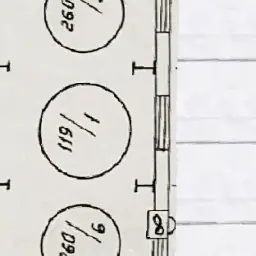 260/
119/1
260/6
8